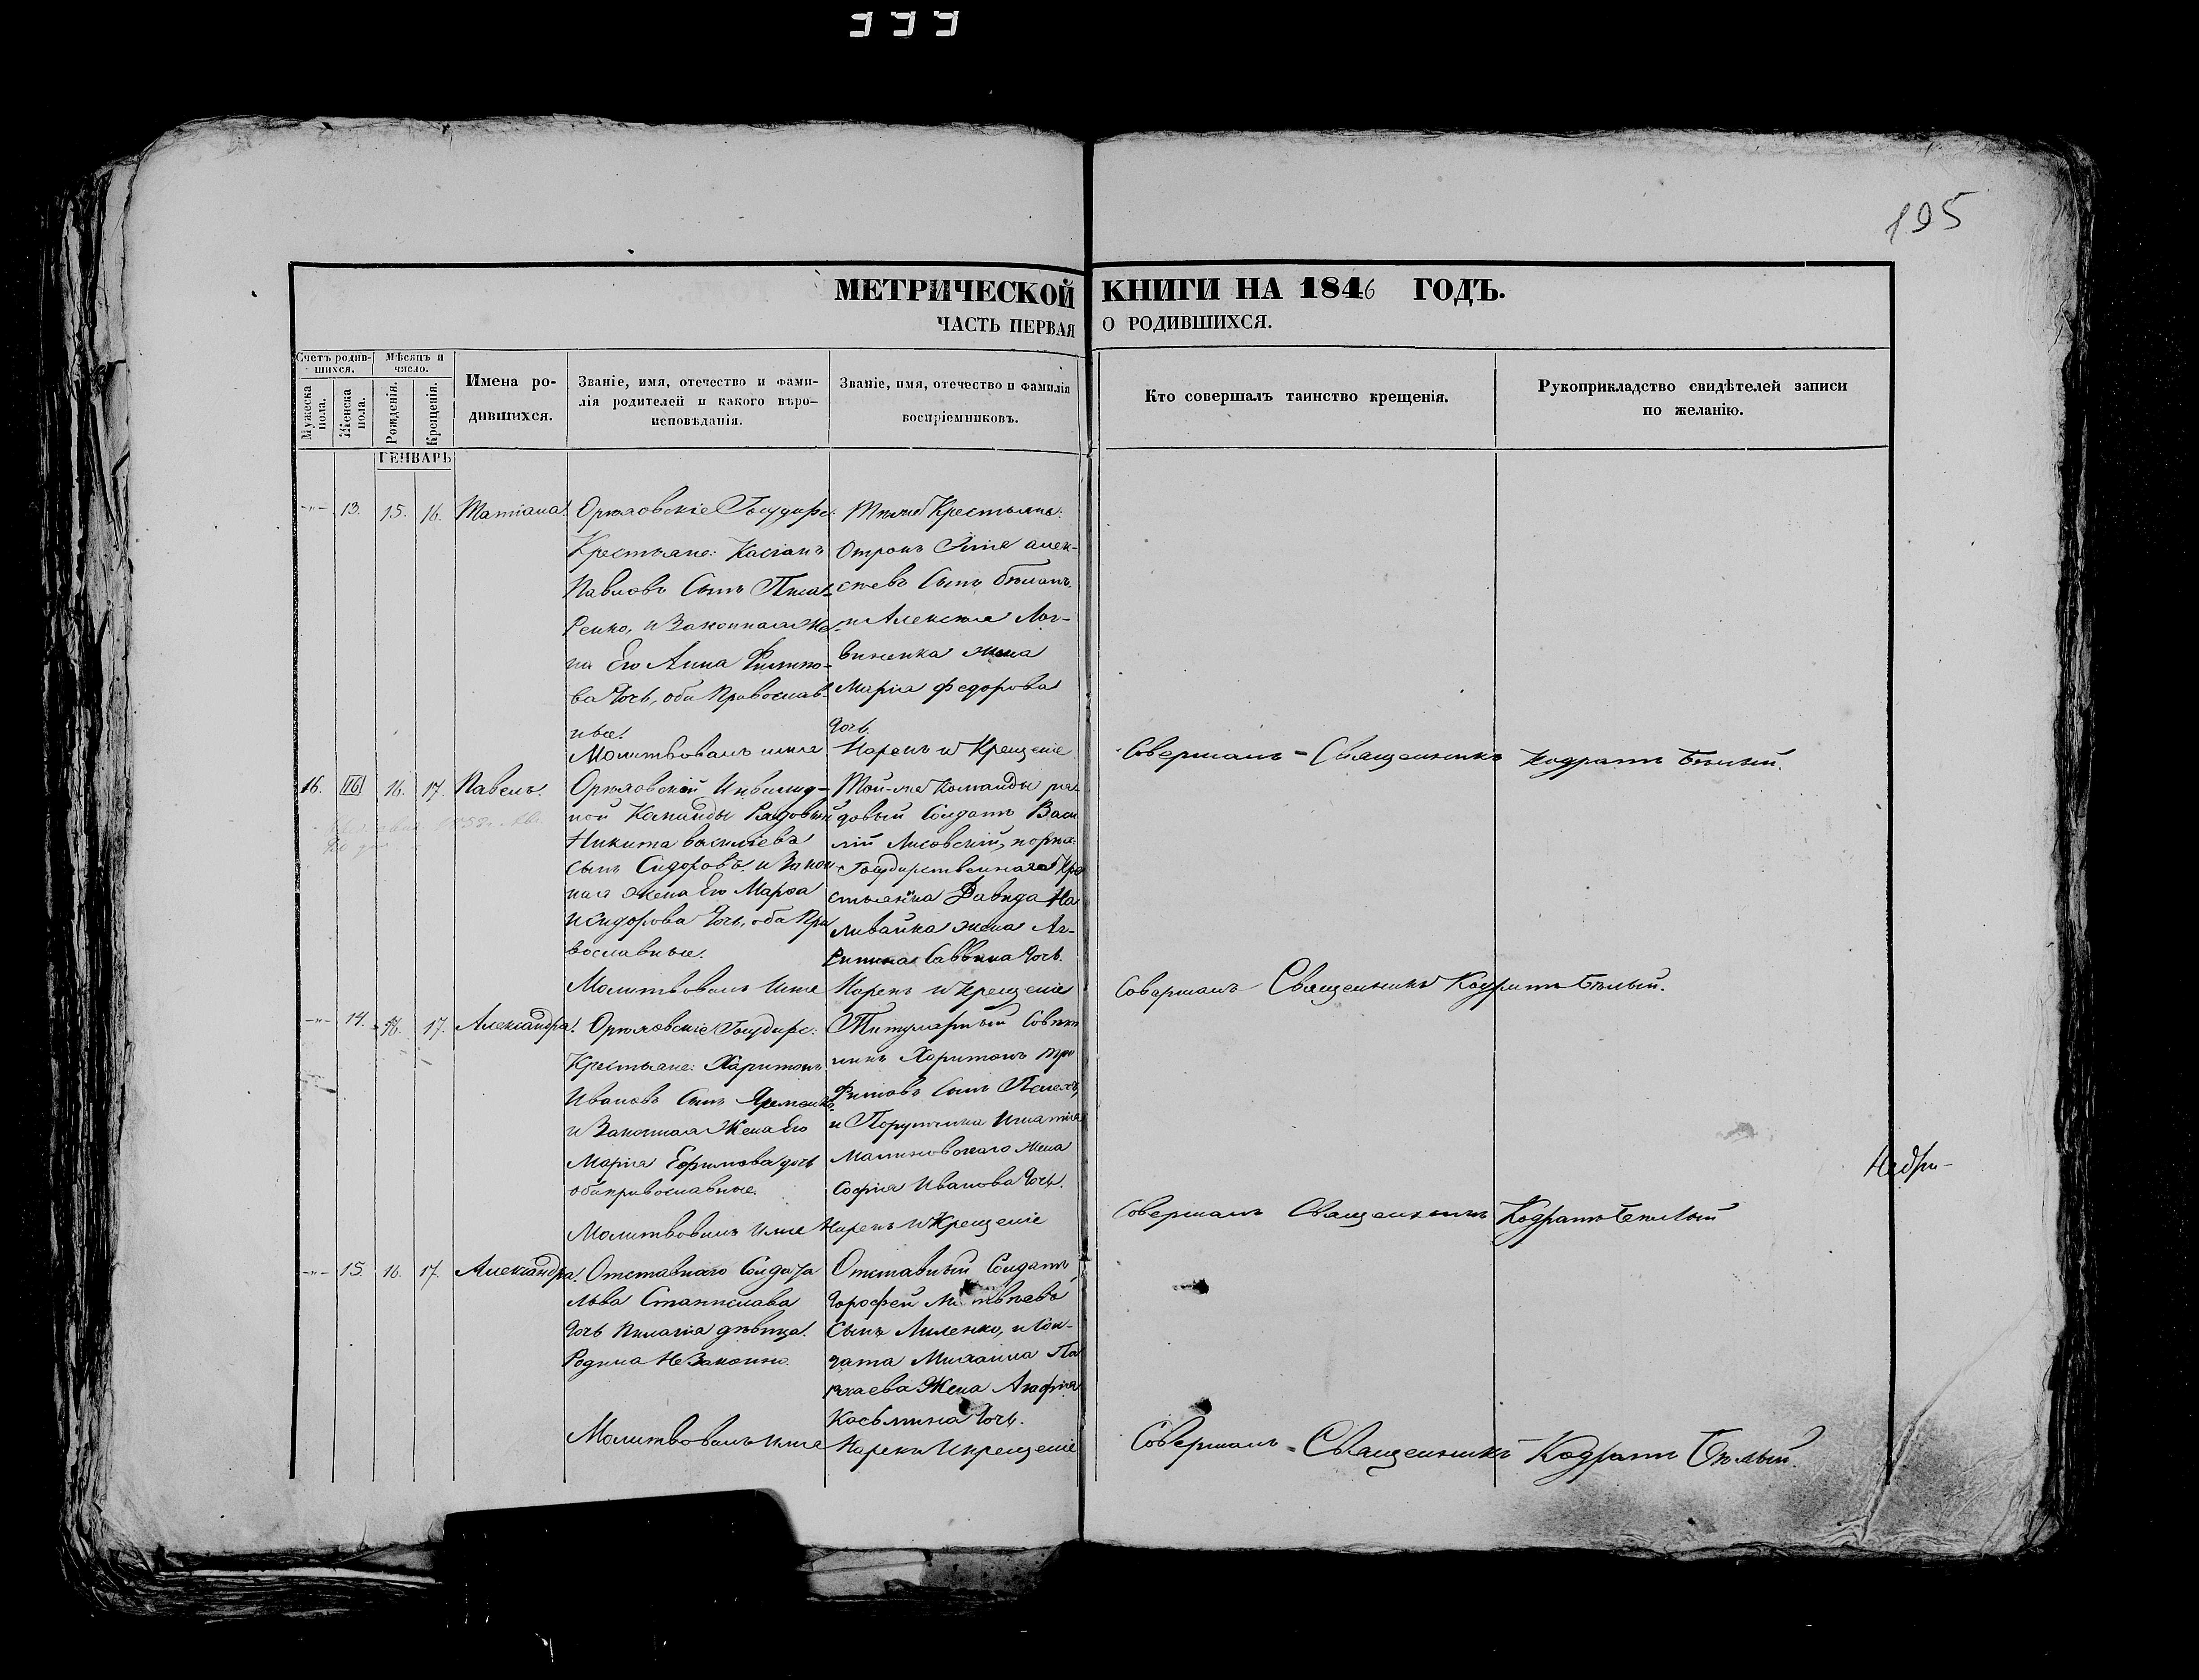 195
МЕТРИЧЕСКОЙ КНИГИ НА 1846 ГОДЪ.
ЧАСТЬ ПЕРВАЯ О РОДИВШИХСЯ.
Счетъ родив-
шихся.
Мужеска пола.
Женска пола.
Мѣсяцъ и
число.
Рожденія.
Крещенія.
Имена ро-
дившихся.
Званіе, имя, отечество и фами-
лія родителей и какого вѣро-
исповѣданія.
Званіе, имя, отечество и фамилія
воспріемниковъ.
Кто совершалъ таинство крещенія.
Рукоприкладство свидѣтелей записи
по желанію.
ГЕНВАРЬ
-"- 13. 15. 16. Татіана.
Орѣховскіе Государс:
Крестьяне: Касіанъ
Павловъ Сынъ
и Законная Же-
на Его Анна Филипо-
ва Дочь, оба Православ-
ные.
Молитвовалъ имя
Отрокъ Илія алек-
сѣевъ Сынъ
и Алексѣя Лог-
виненка жена
Марія федорова
дочь.
Нарекъ и Крещеніе
Совершалъ - Священникъ Кодратъ Бѣлый.
16. 16 16. 17. Павелъ.
Орѣховской Инвалид-
ной Каманды Рядовый
Никита васильева
сынъ Сидоровъ и Закон
ная жена Его Марѳа
исидорова дочь, оба Пра
вославные.
Молитвовалъ Имя
Той-же Команды ря-
довый Солдатъ Васи
лій Лисовскій,
Государственнаго Кре
стьянина Давида На
ливайка жена Аг-
рипина Саввина дочь.
Нарекъ и Крещеніе
Совершалъ Священникъ Кодратъ Бѣлый.
-"- 14. 16. 17. Александра.
Орѣховскіе Государс:
Крестьяне: Харитонъ
Ивановъ Сынъ
и Законная Жена Его
Марія Ефимова дочь
оба православные.
Молитвовалъ имя
Титулярный Совѣт
никъ Харитонъ Тро
фимовъ Сынъ
и Порутчика Игнатія
Малиновскаго жена
Софія Иванова дочь.
Нарекъ и Крещеніе
Совершалъ Священникъ Кодратъ Бѣлый
-"- 15. 16. 17. Александра.
Отставнаго Солдата
Льва Станислава
дочь Пелагія дѣвица.
Родила Не Законно.
Молитвовалъ имя
Отставный Солдатъ
Дорофей Матвѣевъ
Сынъ Миленко, и Сол-
дата Михаила
Жена Агафія
Косьмина дочь.
Нарекъ И крещеніе
Совершалъ - Священникъ Кодратъ Бѣлый.